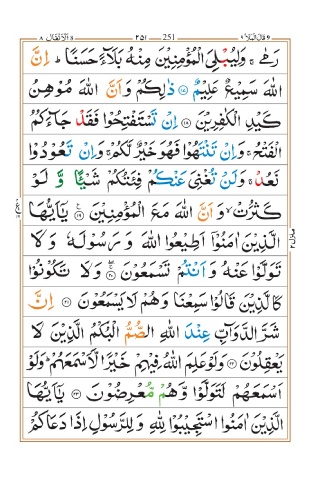 قال الملا ٩ ٢٥١ 251 الانفال ٨
رَمٰى ۚ وَلِيُبْلِىَ الْمُؤْمِنِيْنَ مِنْهُ بَلَآءً حَسَنًا ؕ اِنَّ
اللّٰهَ سَمِيْعٌ عَلِيْمٌ ﴿۱۷﴾ ذٰلِكُمْ وَاَنَّ اللّٰهَ مُوْهِنُ
كَيْدِ الْكٰفِرِيْنَ ﴿۱۸﴾ اِنْ تَسْتَفْتِحُوْا فَقَدْ جَآءَكُمُ
الْفَتْحُ ۚ وَاِنْ تَنْتَهُوْا فَهُوَ خَيْرٌ لَّكُمْ ۚ وَاِنْ تَعُوْدُوْا
نَعُدْ ۚ وَلَنْ تُغْنِىَ عَنْكُمْ فِئَتُكُمْ شَيْـًٔا وَّ لَوْ
كَثُرَتْ ۙ وَ اَنَّ اللّٰهَ مَعَ الْمُؤْمِنِيْنَ ﴿۱۹﴾ يٰۤاَيُّهَا
الَّذِيْنَ اٰمَنُوْۤا اَطِيْعُوا اللّٰهَ وَ رَسُوْلَهٗ وَ لَا
تَوَلَّوْا عَنْهُ وَ اَنْتُمْ تَسْمَعُوْنَ ﴿۲۰﴾ وَ لَا تَكُوْنُوْا
كَالَّذِيْنَ قَالُوْا سَمِعْنَا وَ هُمْ لَا يَسْمَعُوْنَ ﴿۲۱﴾ اِنَّ
شَرَّ الدَّوَآبِّ عِنْدَ اللّٰهِ الصُّمُّ الْبُكْمُ الَّذِيْنَ لَا
يَعْقِلُوْنَ ﴿۲۲﴾ وَلَوْ عَلِمَ اللّٰهُ فِيْهِمْ خَيْرًا لَّاَسْمَعَهُمْ ؕ وَلَوْ
اَسْمَعَهُمْ لَتَوَلَّوْا وَّهُمْ مُّعْرِضُوْنَ ﴿۲۳﴾ يٰۤاَيُّهَا
الَّذِيْنَ اٰمَنُوا اسْتَجِيْبُوْا لِلّٰهِ وَ لِلرَّسُوْلِ اِذَا دَعَاكُمْ